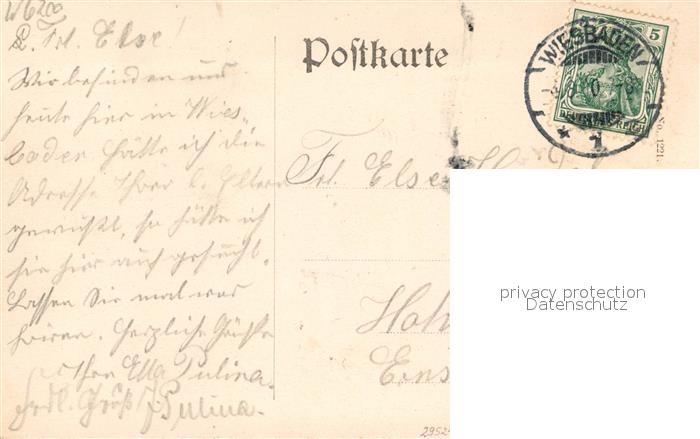 W6200
L. Frl. Else!
Wir befinden uns
heute hier in Wies-
baden hätte ich die
Adresse Ihrer l. Eltern
gewußt, so hätte ich
sie hier auch gesucht.
Lassen Sie mal was
hören. Herzliche Grüße
Ihre Ella Pulina.
Frdl. Gruß Pulina.
Postkarte
WIESBADEN
5
DEUTSCHES REICH
* 1
No. 1221
Frl. Else
privacy protection
Datenschutz
Hoh
Ens
2952